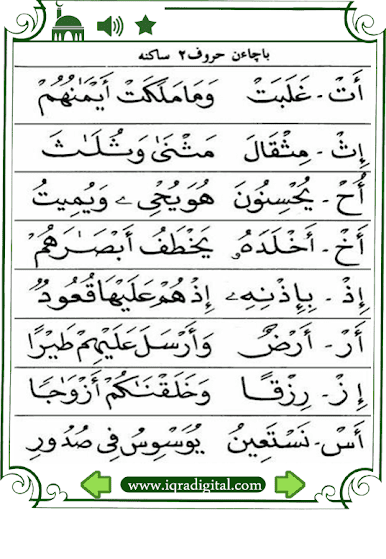 باچاءن حروف٢ ساکنه
أَتْ - غَلَبَتْ وَمَا مَلَكَتْ أَيْمَٰنُهُمْ
إِثْ - مِثْقَالَ مَثْنَىٰ وَثُلَٰثَ
أُحْ - يُحْسِنُونَ هُوَ يُحْيِۦ وَيُمِيتُ
أَخْ - أَخْلَدَهُۥ يَخْطَفُ أَبْصَٰرَهُمْ
إِذْ - بِإِذْنِهِۦ إِذْهُمْ عَلَيْهَا قُعُودٌ
أَرْ - أَرْضٌ وَأَرْسَلَ عَلَيْهِمْ طَيْرًا
إِزْ - رِزْقًا وَخَلَقْنَٰكُمْ أَزْوَٰجًا
أَسْ - نَسْتَعِينُ يُوَسْوِسُ فِى صُدُورِ
www.iqradigital.com